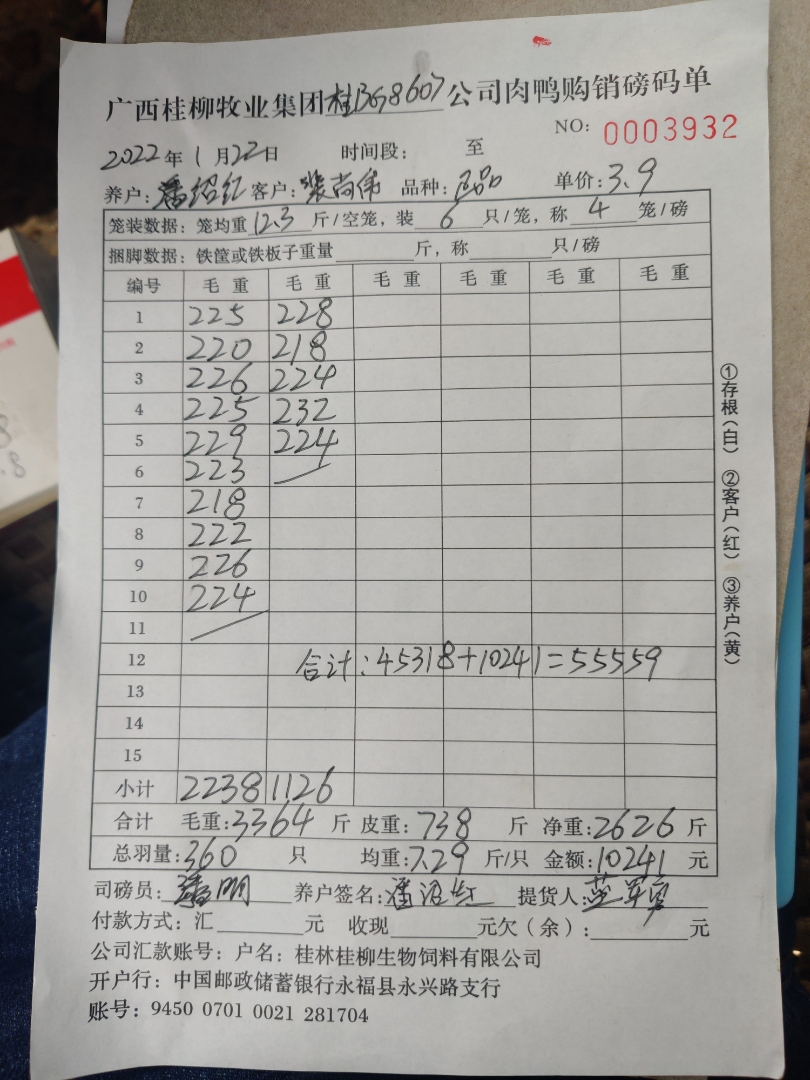 广西桂柳牧业集团桂BG8607公司肉鸭购销磅码单
NO: 0003932
2022年1月22日 时间段: 至
养户:潘绍红 客户:裴尚伟 品种:正品 单价:3.9
笼装数据: 笼均重12.3斤/空笼, 装6只/笼, 称4笼/磅
捆脚数据: 铁筐或铁板子重量 斤, 称 只/磅
编号 毛重 毛重 毛重 毛重 毛重 毛重
1 225 228
2 220 218
3 226 224
4 225 232
5 229 224
6 223
7 218
8 222
9 226
10 224
11
12 合计:45318+10241=55559
13
14
15
小计 2238 1126
合计 毛重:3364斤 皮重:738斤 净重:2626斤
总羽量:360只 均重:7.29斤/只 金额:10241元
司磅员:潘明 养户签名:潘绍红 提货人:
付款方式: 汇 元 收现 元欠(余): 元
公司汇款账号: 户名: 桂林桂柳生物饲料有限公司
开户行: 中国邮政储蓄银行永福县永兴路支行
账号: 9450 0701 0021 281704
①存根(白) ②客户(红) ③养户(黄)
8
.8